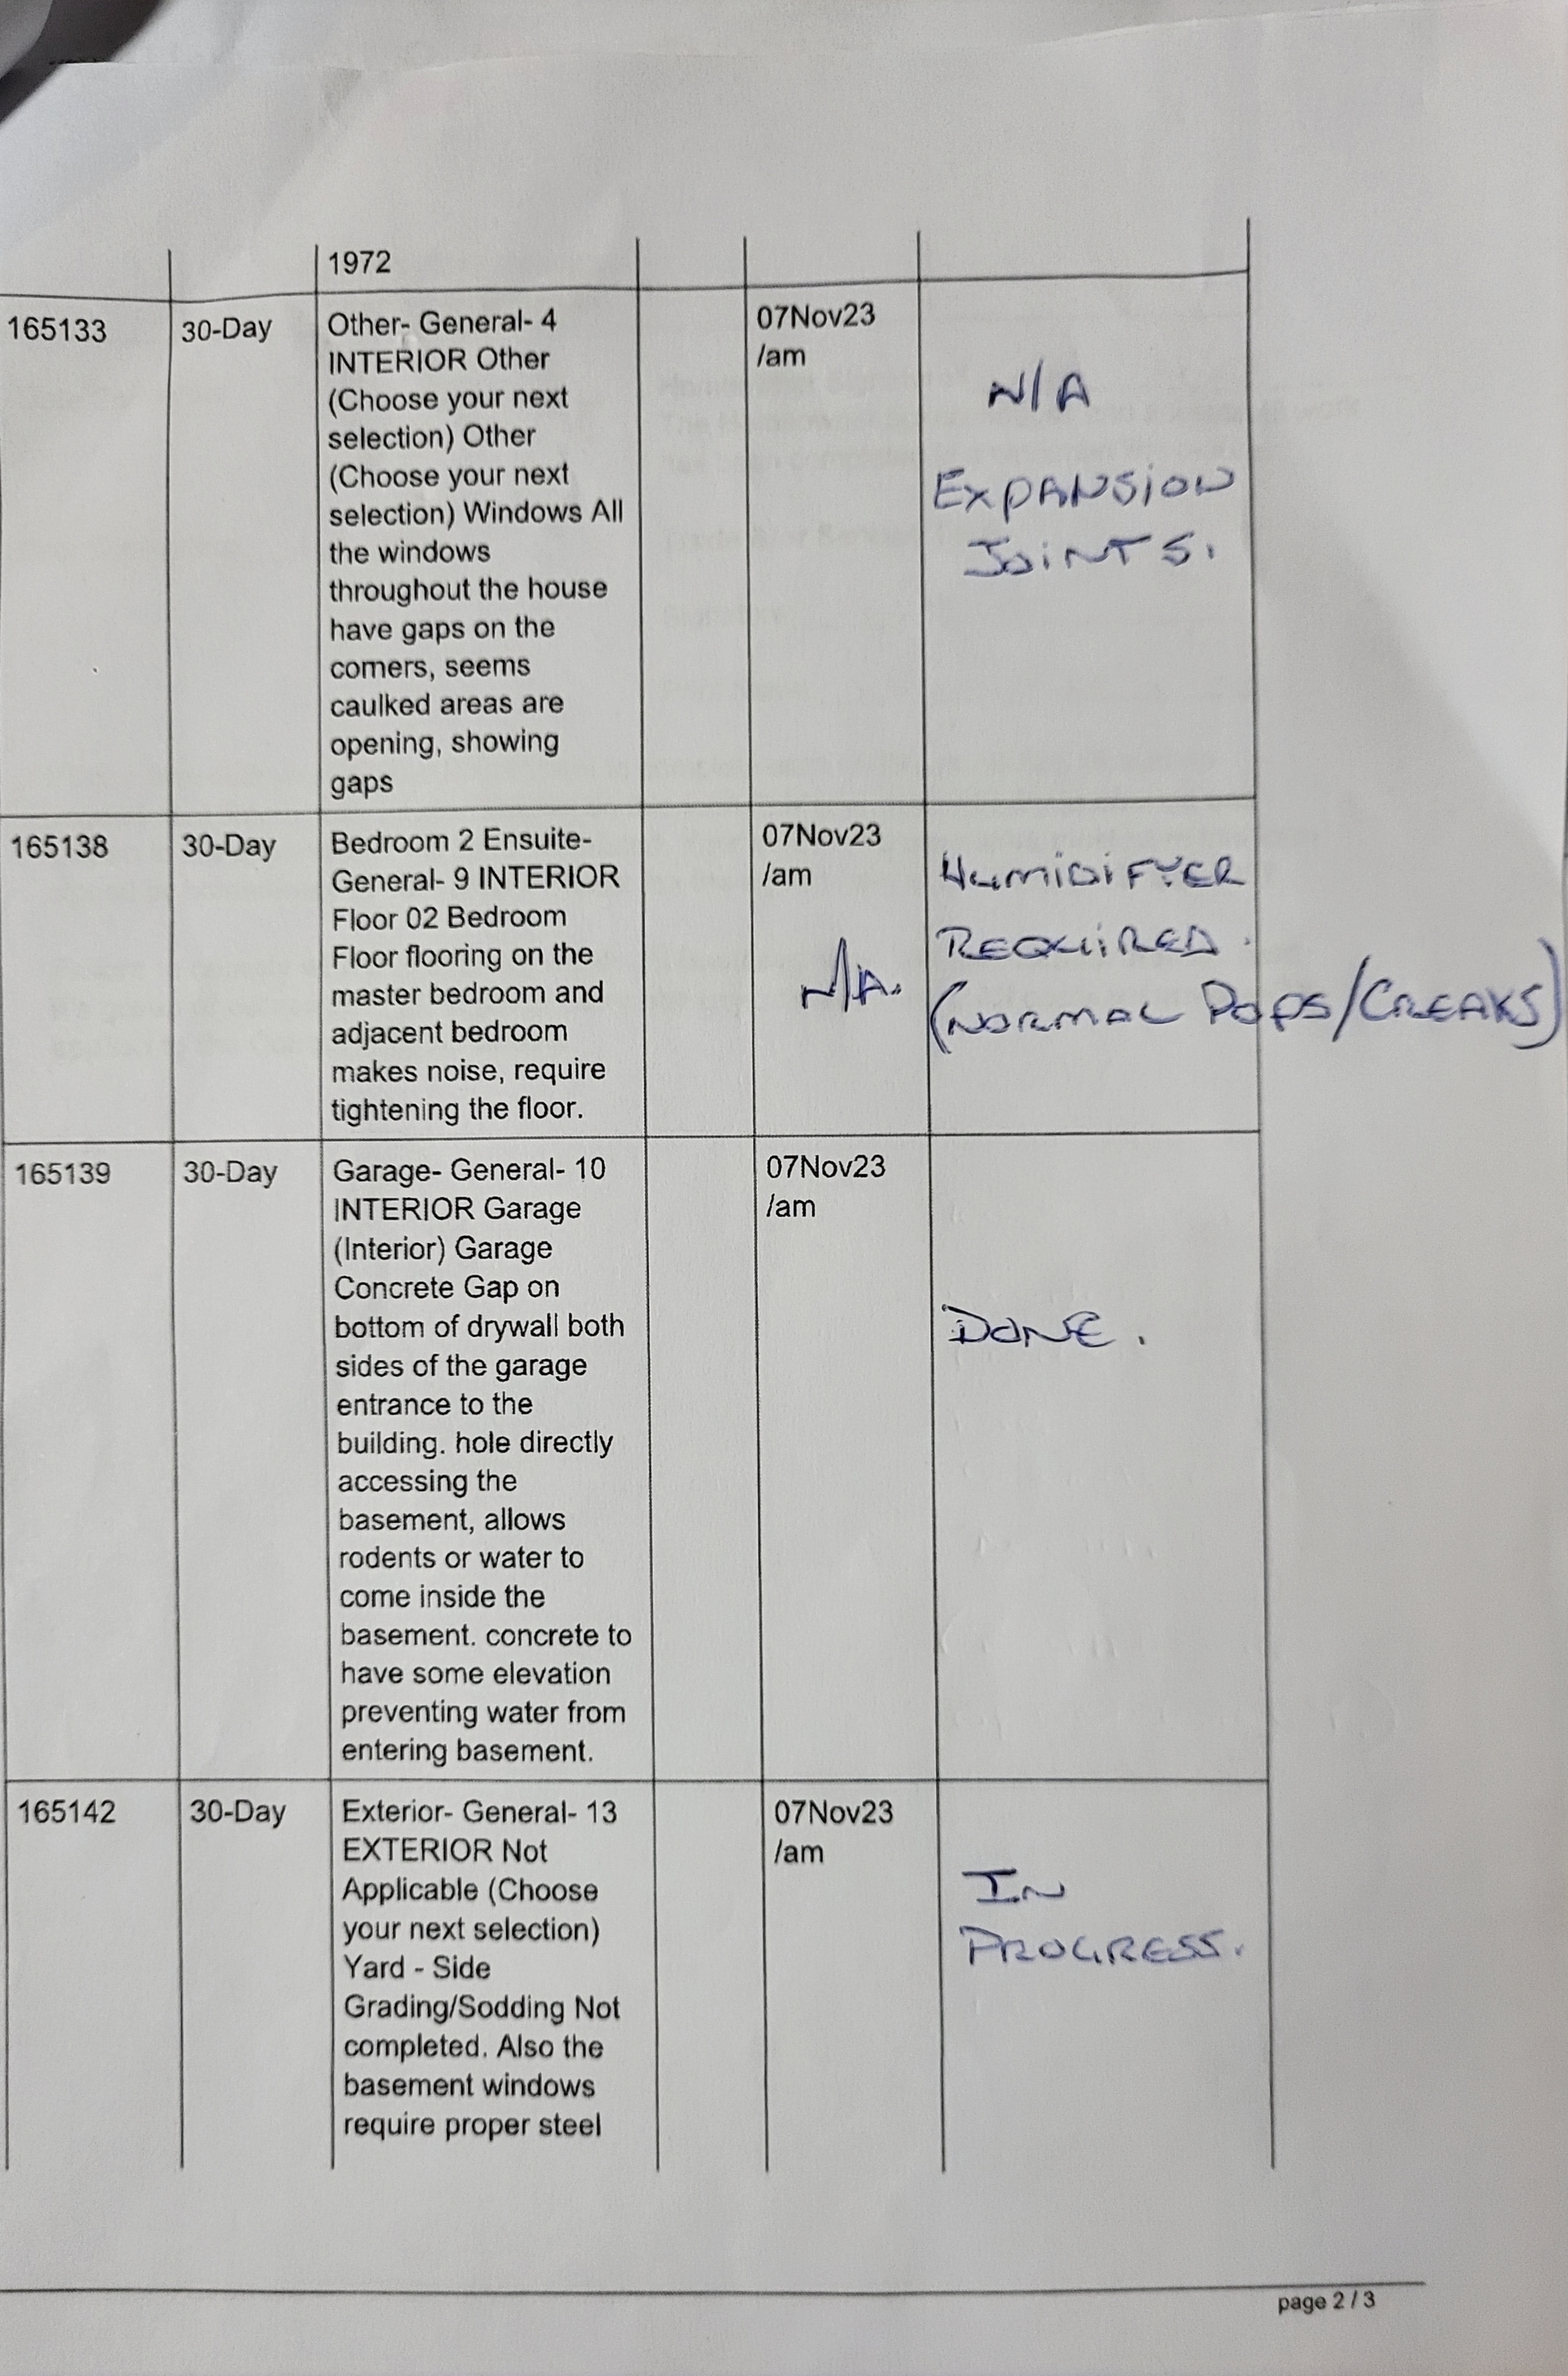 1972
165133
30-Day
Other- General- 4
INTERIOR Other
(Choose your next
selection) Other
(Choose your next
selection) Windows All
the windows
throughout the house
have gaps on the
corners, seems
caulked areas are
opening, showing
gaps
07Nov23
/am
N/A
EXPANSION
JOINTS.
165138
30-Day
Bedroom 2 Ensuite-
General- 9 INTERIOR
Floor 02 Bedroom
Floor flooring on the
master bedroom and
adjacent bedroom
makes noise, require
tightening the floor.
07Nov23
/am
N/A.
HUMIDIFYER
REQUIRED.
(NORMAL POPS/CREAKS)
165139
30-Day
Garage- General- 10
INTERIOR Garage
(Interior) Garage
Concrete Gap on
bottom of drywall both
sides of the garage
entrance to the
building. hole directly
accessing the
basement, allows
rodents or water to
come inside the
basement. concrete to
have some elevation
preventing water from
entering basement.
07Nov23
/am
DONE.
165142
30-Day
Exterior- General- 13
EXTERIOR Not
Applicable (Choose
your next selection)
Yard - Side
Grading/Sodding Not
completed. Also the
basement windows
require proper steel
07Nov23
/am
IN
PROGRESS.
page 2 / 3